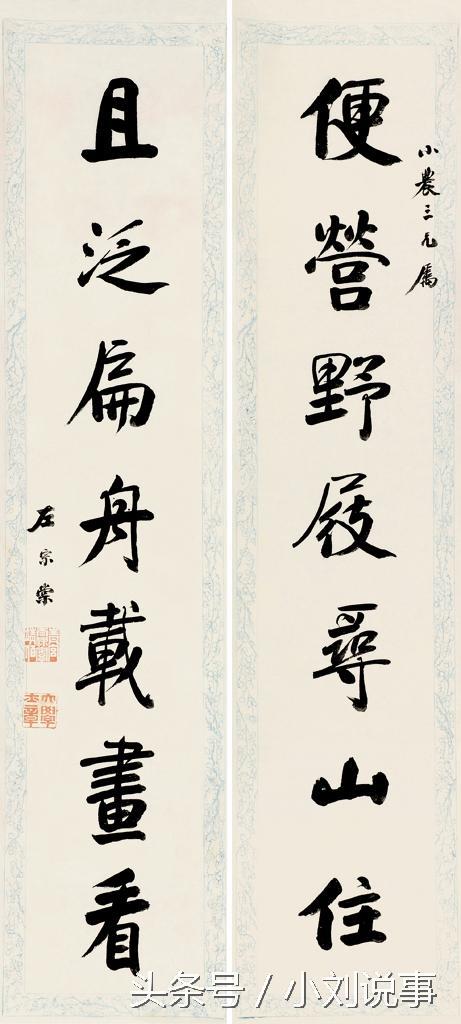 小農三兄屬
便營野屐尋山住
且泛扁舟載畫看
左宗棠
大學士章
头条号 / 小刘说事